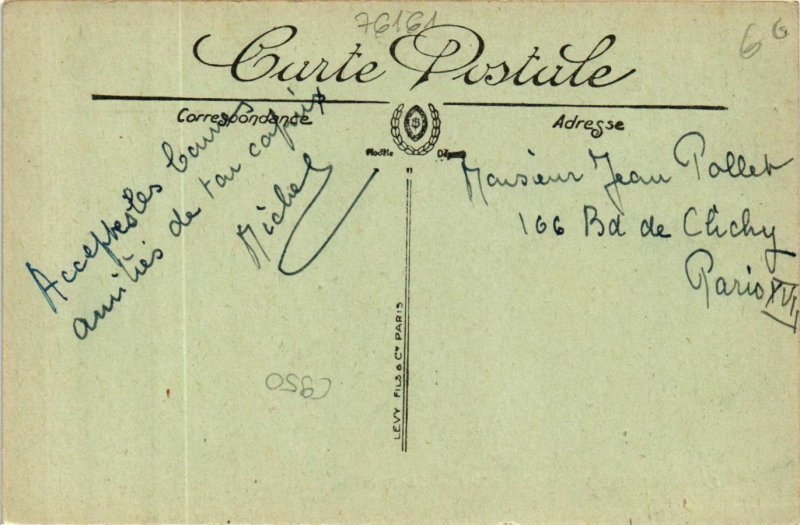 76161
6⁰
Carte Postale
Correspondance
Adresse
Modèle Déposé
Accepte les bonnes
amitiés de ton copain
Michel
Monsieur Jean Pollet
166 Bd de Clichy
Paris XVII
LEVY FILS & Cie PARIS
C950